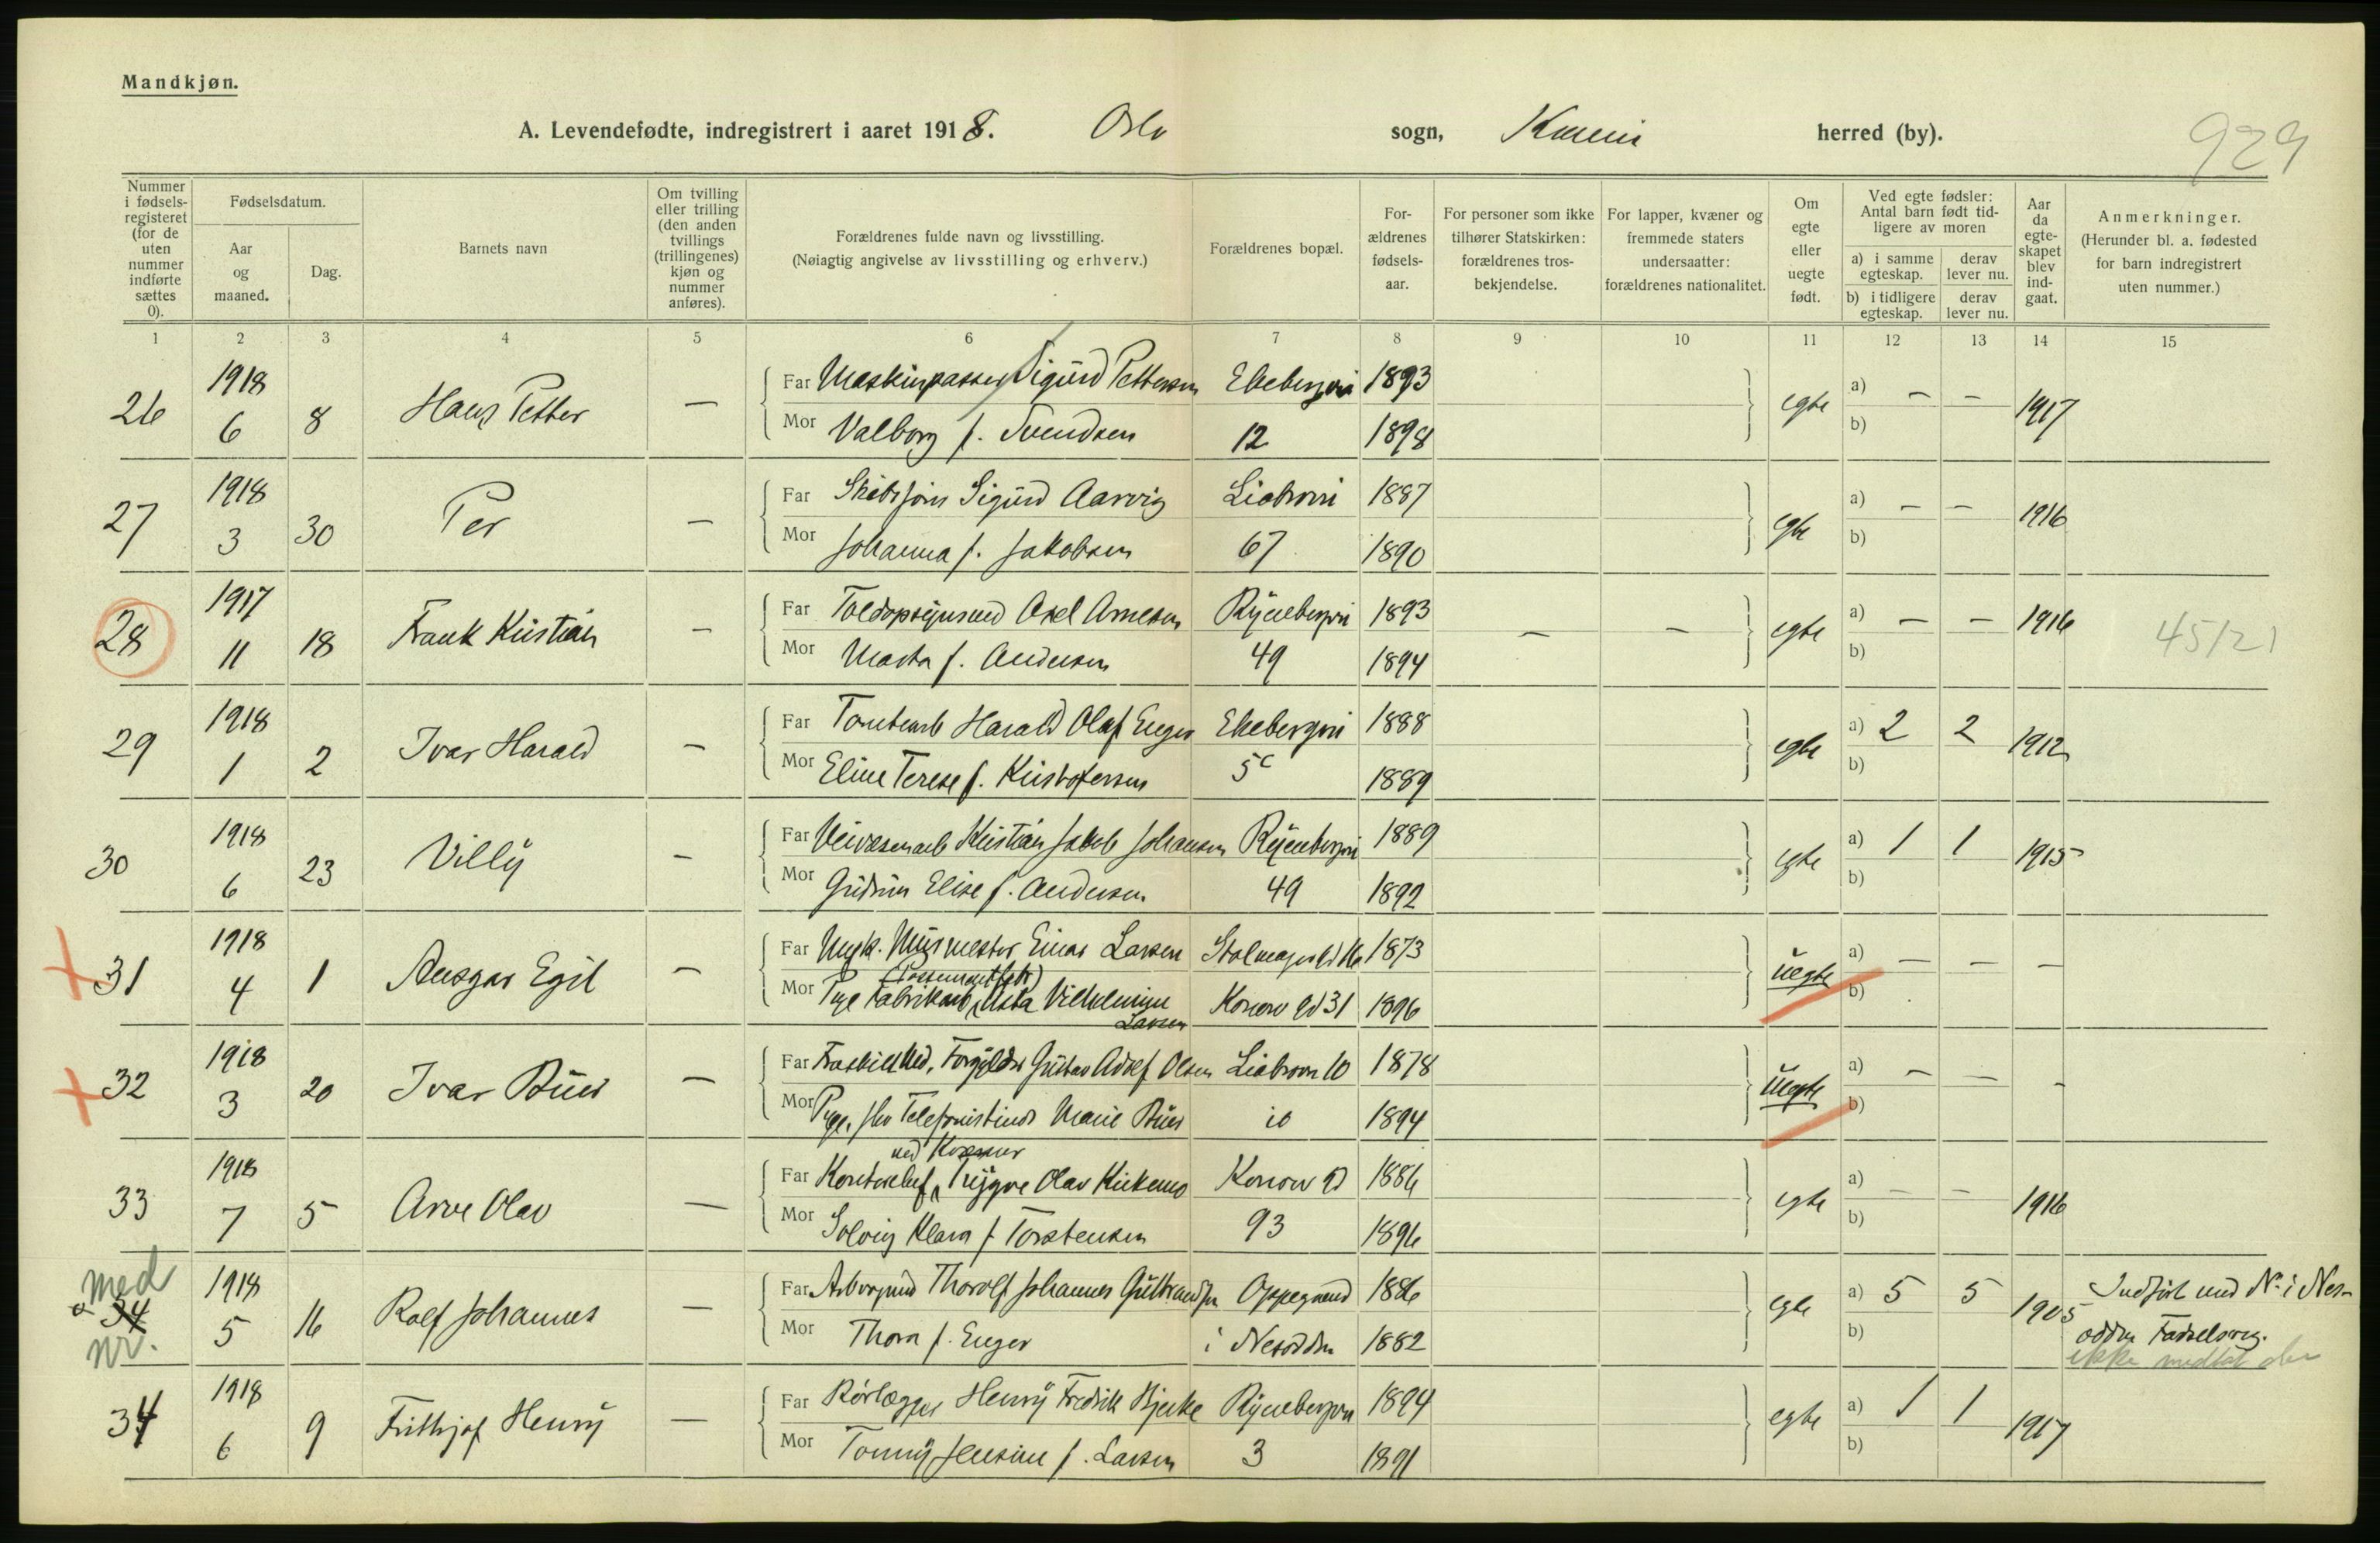 Mandkjøn.
A. Levendefødte, indregistrert i aaret 1918. Oslo sogn, herred (by).
929
Nummer i fødselsregisteret (for de uten nummer indførte sættes 0).
Fødselsdatum.
Aar og maaned.
Dag.
Barnets navn
Om tvilling eller trilling (den anden tvillings (trillingenes) kjøn og nummer anføres).
Forældrenes fulde navn og livsstilling.
(Nøiagtig angivelse av livsstilling og erhverv.)
Forældrenes bopæl.
For-ældrenes fødsels-aar.
For personer som ikke tilhører Statskirken: forældrenes tros-bekjendelse.
For lapper, kvæner og fremmede staters undersaatter: forældrenes nationalitet.
Om egte eller uegte født.
Ved egte fødsler: Antal barn født tid-ligere av moren
a) i samme egteskap. derav lever nu.
b) i tidligere egteskap. derav lever nu.
Aar da egte-skapet blev ind-gaat.
Anmerkninger.
(Herunder bl. a. fødested for barn indregistrert uten nummer.)
1 2 3 4 5 6 7 8 9 10 11 12 13 14 15
26 1918 6 8 Hans Petter — Far Maskinpasser Sigurd Pettersen Ekebergvei 1893 egte a) — — 1917
Mor Valborg f. Svendsen 12 1898 b)
27 1918 3 30 Per — Far Sigurd Aarvig 1887 egte a) — — 1916
Mor Johanna f. Jakobsen 67 1890 b)
28 1917 11 18 Frank Kristian — Far Axel Arnesen Ryenbergvei 1893 — — egte a) — — 1916 45/21
Mor Marta f. Andersen 49 1894 b)
29 1918 1 2 Ivar Harald — Far Tomtearb Harald Olaf Enger Ekebergvei 1888 egte a) 2 2 1912
Mor Eline Terese f. Kristofersen 5c 1889 b)
30 1918 6 23 Villy — Far Veivæsenarb Kristian Jakob Johansen Ryenbergvei 1889 egte a) 1 1 1915
Mor Gudrun Elise f. Andersen 49 1892 b)
31 1918 4 1 Ansgar Egil — Far Ungk. Murmester Einar Larsen 1873 uegte a) — — —
Mor Pige Fabrikarb, Asta Vilhelmine Larsen Konow gd 31 1896 b)
32 1918 3 20 Ivar — Far Fraskilt Forgylder Gustav Adolf Olsen Liabrovn 10 1878 uegte a) — — -
Mor Pige, Telefonistinde Marie 10 1894 b)
33 1918 7 5 Arve Olav — Far Kontorchef, Trygve Olav Kirkemo Konow gd 1886 egte a) — — 1916
Mor Solveig Klara f Torstensen 93 1896 b)
med 0 34 nr. 1918 5 16 Rolf Johannes — Far Thorolf Johannes Oppegaard 1886 egte a) 5 5 1905 Indført med No i Nes-
Mor Thora f. Enger i Nesodden 1882 b) odden Fødselsreg.
ikke medtat der
34 1918 6 9 Frithjof Henry — Far Rørlægger Henry Fredrik Bjerke Ryenbergvei 1894 egte a) 1 1 1917
Mor Tonny Jensine f. Larsen 3 1891 b)